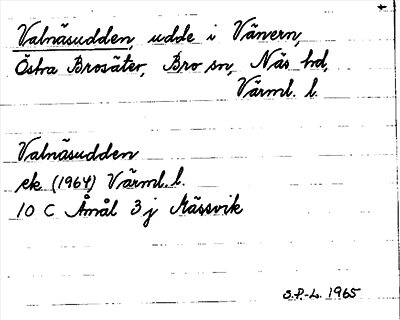 Valnäsudden, udde i Vänern,
Östra Brosäter, Bro sn, Näs hd,
Värml. l.
Valnäsudden
ek (1964) Värml. l.
10 C Åmål 3 j Mässvik
S.P.-L. 1965